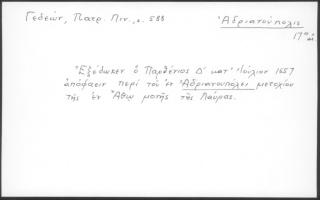 Γεδεών, Πατρ. Πιν., σ. 588
Ἀδριανούπολις
17ος αἰ
Ἐξέδωκεν ὁ Παρθένιος Δ' κατ' Ἰούλιον 1657
ἀπόφασιν περὶ τοῦ ἐν Ἀδριανουπόλει μετοχίου
τῆς ἐν Ἄθῳ μονῆς τῆς Λαύρας.